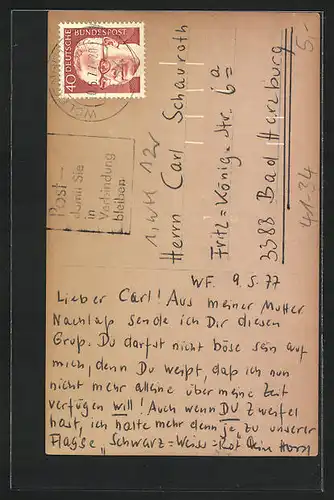 40 DEUTSCHE BUNDESPOST
Post –
damit Sie
in
Verbindung
bleiben
Herrn Carl Schauroth
Fritz=König=Str. 6a
3388 Bad Harzburg
41-34
5,-
WF. 9.5.77
Lieber Carl! Aus meiner Mutter
Nachlaß sende ich Dir diesen
Gruß. Du darfst nicht böse sein auf
mich, denn Du weißt, daß ich nun
nicht mehr alleine über meine Zeit
verfügen will! Auch wenn DU Zweifel
hast, ich halte mehr denn je, zu unserer
Flagge „Schwarz=Weiss=Rot" Dein Horst